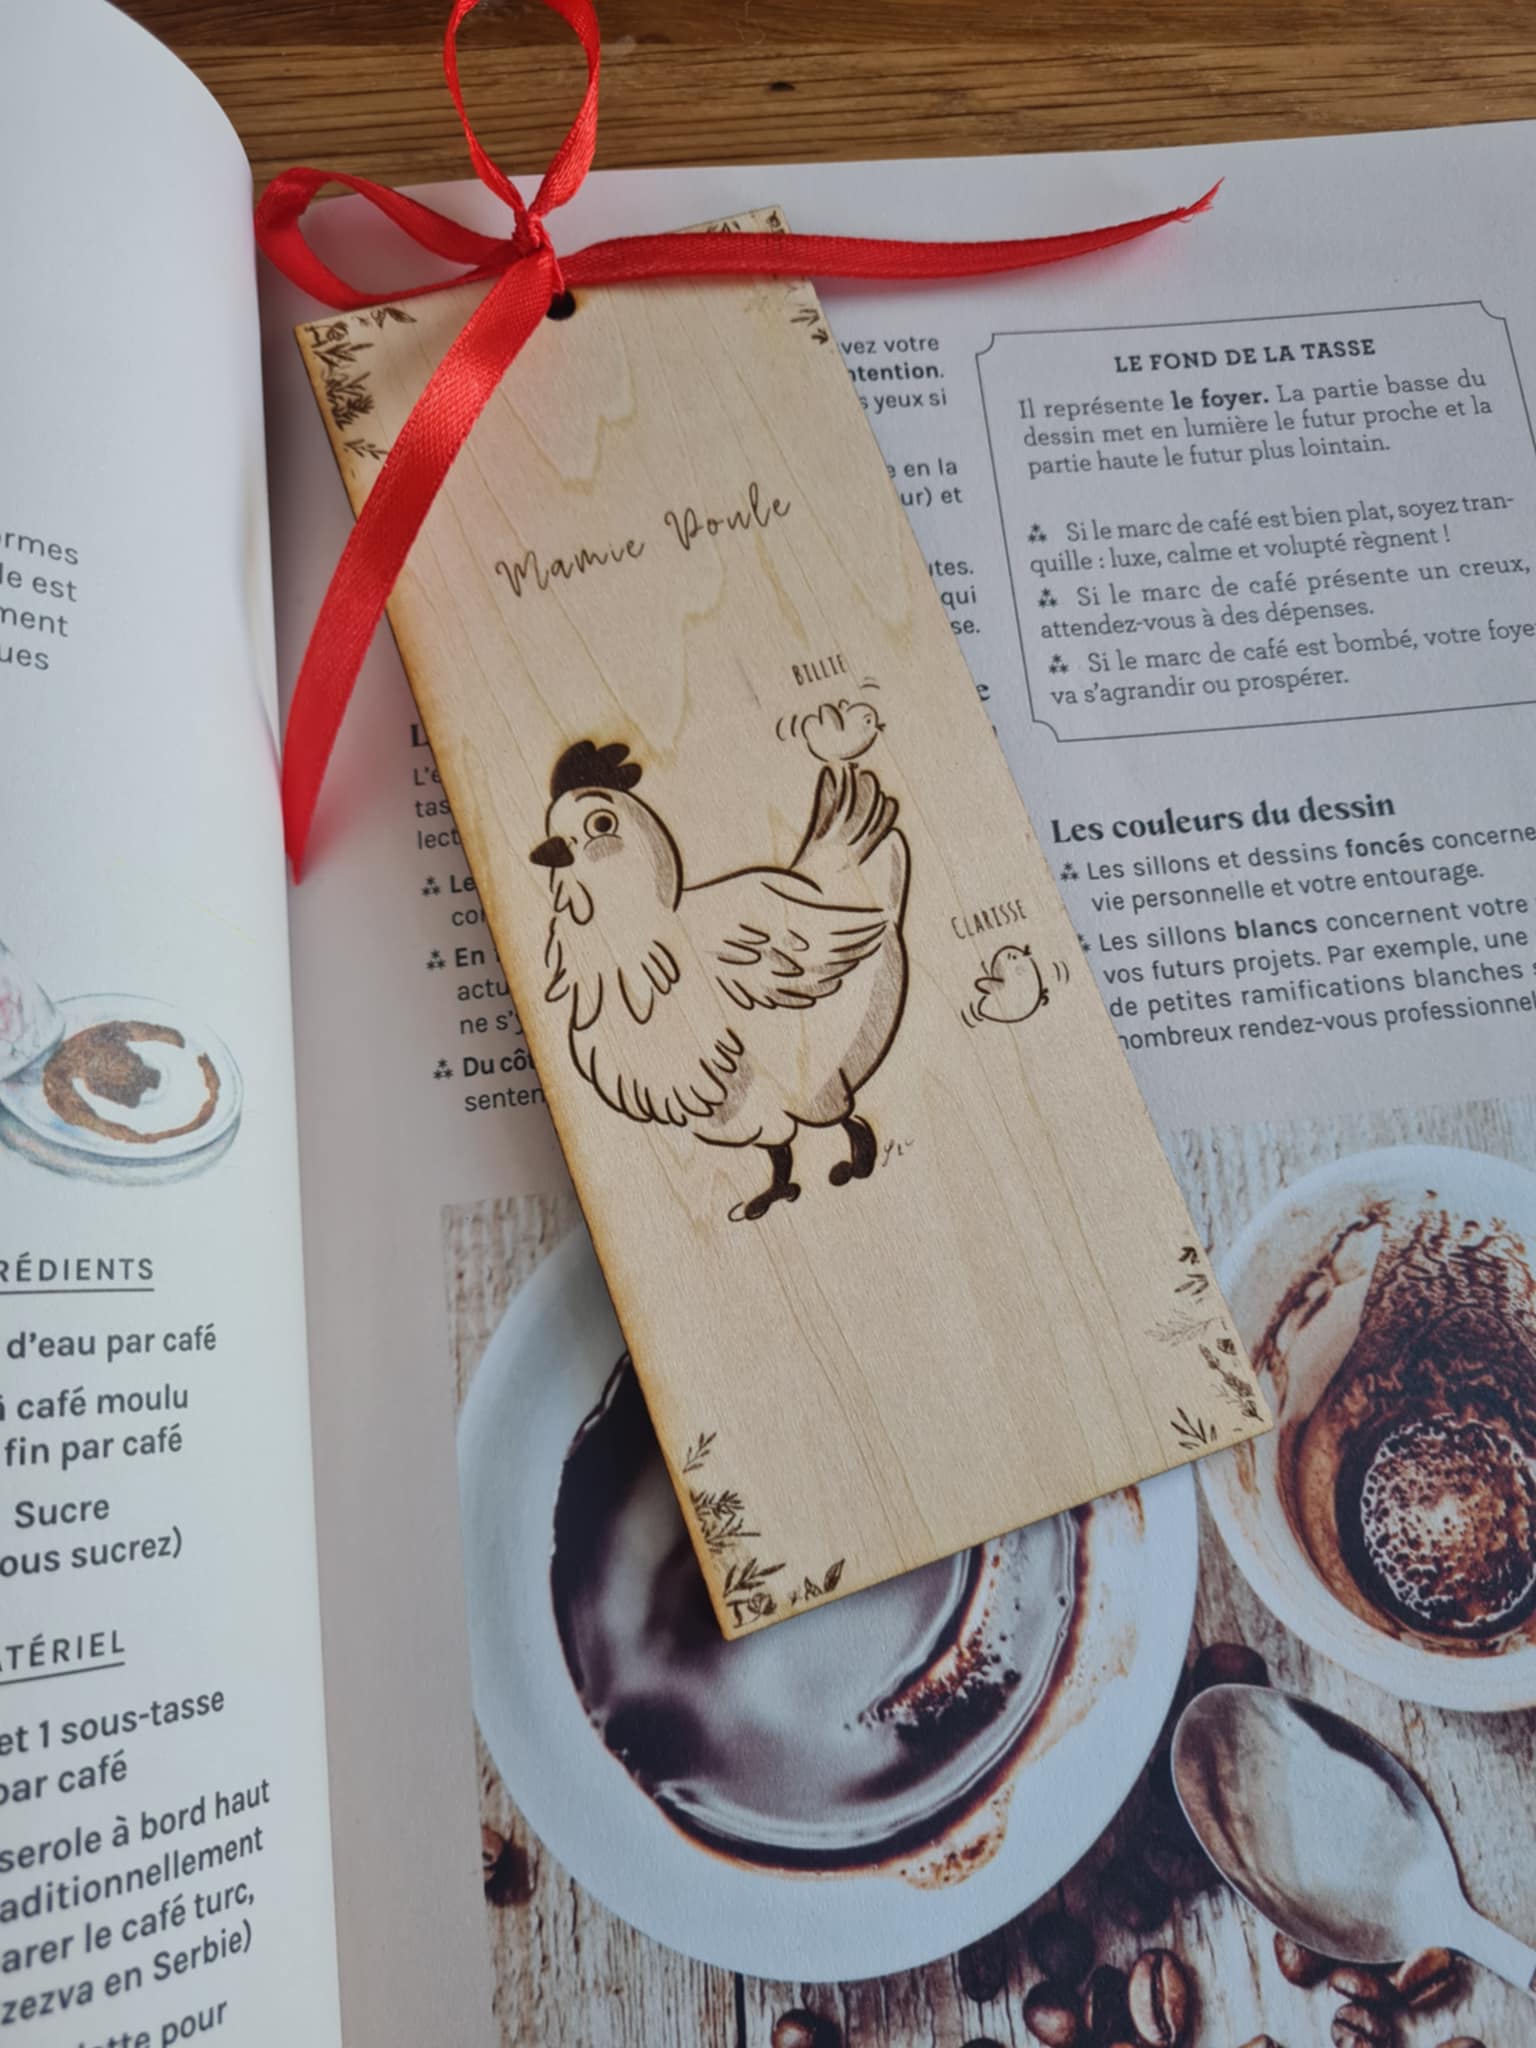 Mamie Poule
BILLIE
CLARISSE
vez votre
ntention.
s yeux si
en la
ur) et
utes.
qui
se.
LE FOND DE LA TASSE
Il représente le foyer. La partie basse du
dessin met en lumière le futur proche et la
partie haute le futur plus lointain.
⁂ Si le marc de café est bien plat, soyez tran-
quille : luxe, calme et volupté règnent !
⁂ Si le marc de café présente un creux,
attendez-vous à des dépenses.
⁂ Si le marc de café est bombé, votre foye
va s'agrandir ou prospérer.
Les couleurs du dessin
⁂ Les sillons et dessins foncés concerne
vie personnelle et votre entourage.
⁂ Les sillons blancs concernent votre
vos futurs projets. Par exemple, une
de petites ramifications blanches s
nombreux rendez-vous professionnel
L
L'é
tas
lect
⁂ Le
co
⁂ En
actu
ne s'y
⁂ Du côt
senten
ormes
le est
ment
ues
RÉDIENTS
d'eau par café
à café moulu
fin par café
Sucre
ous sucrez)
ATÉRIEL
et 1 sous-tasse
par café
serole à bord haut
aditionnellement
arer le café turc,
zezva en Serbie)
ette pour